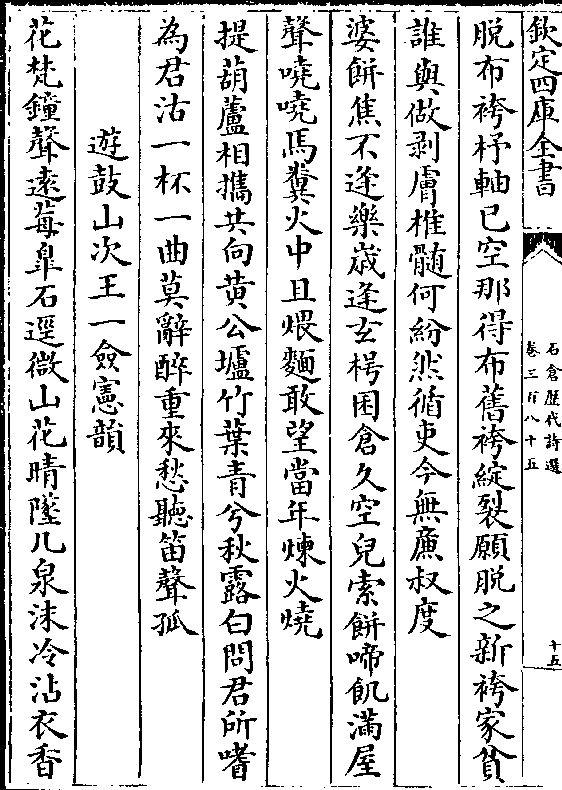 欽定四庫全書
石倉歷代詩選
卷三百八十五
十五
脫布袴杼軸已空那得布舊袴綻裂願脫之新袴家貧
誰與做剥膚椎髓何紛然循吏今無廉叔度
婆餅焦不逢樂歲逢玄枵囷倉久空兒索餅啼飢滿屋
聲嘵嘵馬糞火中且煨麵敢望當年煉火燒
提葫蘆相攜共向黄公壚竹葉青兮秋露白問君所嗜
為君沽一杯一曲莫辭醉重來愁聽笛聲孤
遊鼓山次王一僉憲韻
花梵鐘聲遠莓臯石逕微山花晴墜几泉沫冷沾衣香